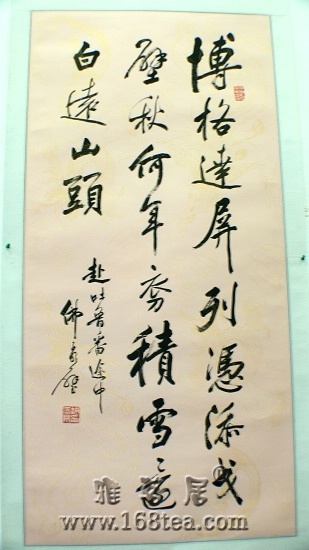 博格達屏列憑添戈
壁秋何年積雪
白遠山頭
赴吐魯番途中
雅居
www.168tea.com